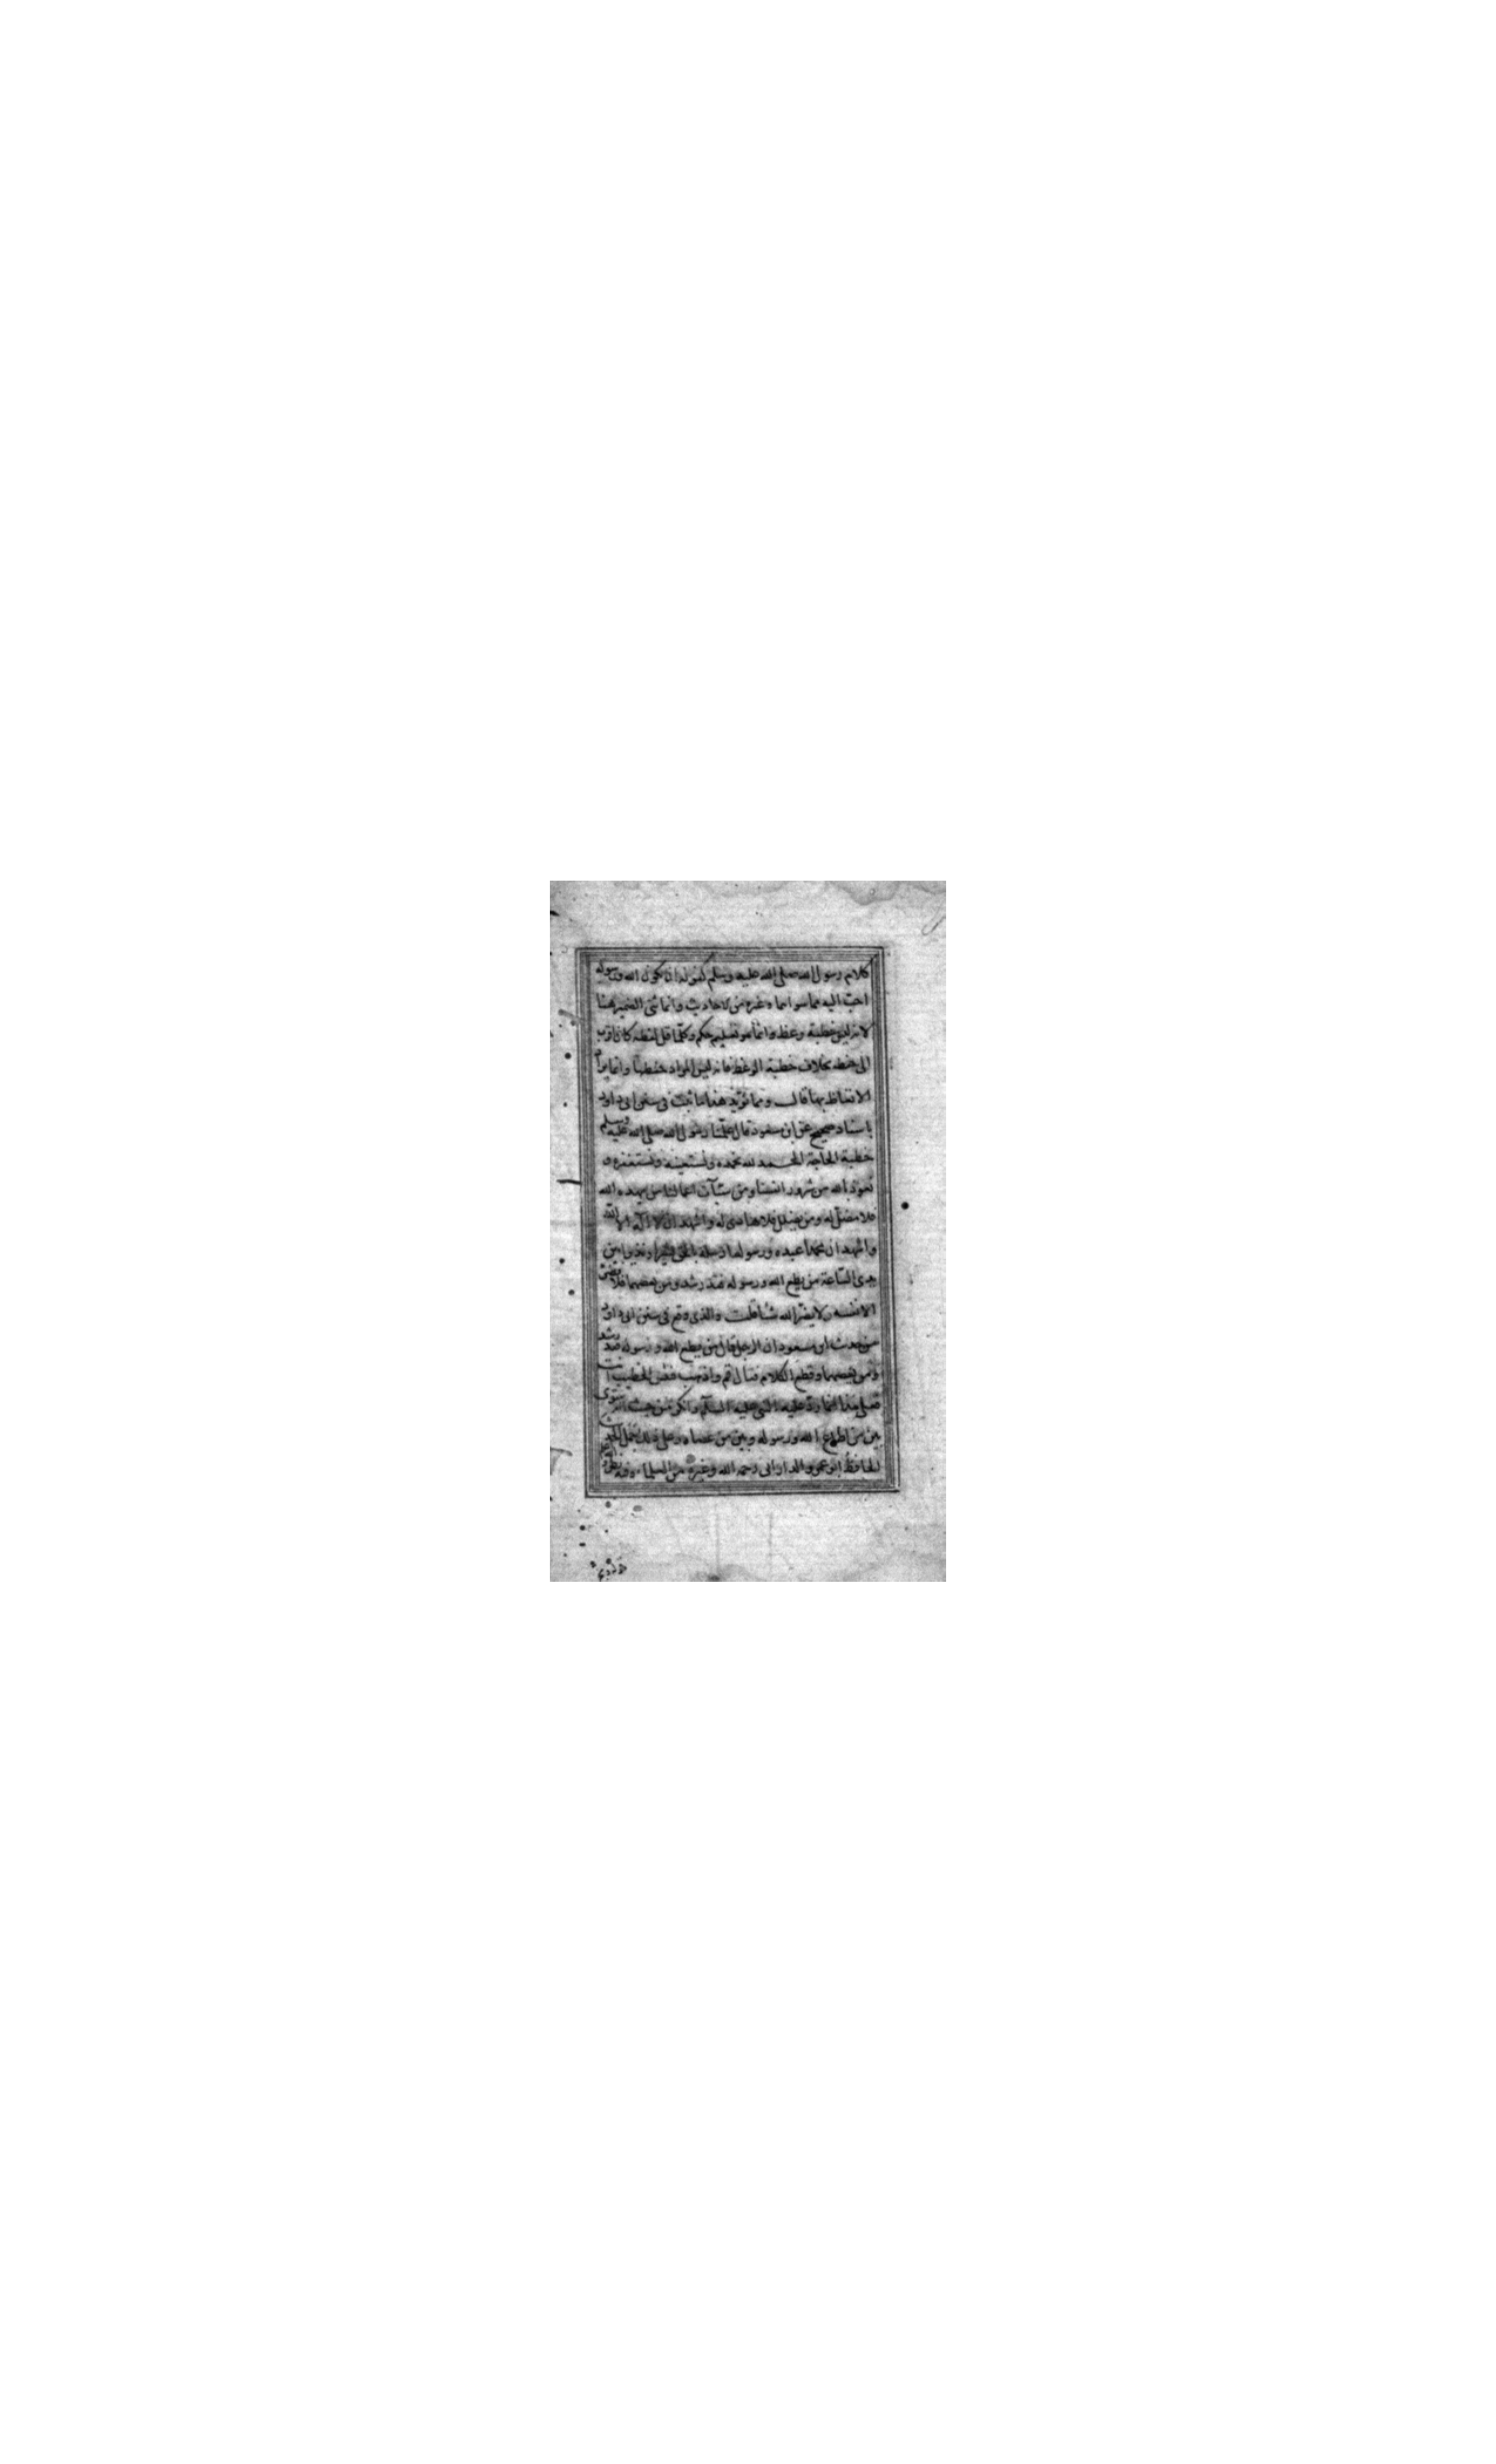 كلام رسول الله صلى الله عليه وسلم كقوله ان يكون الله ورسوله
احبّ اليه مما سواهما وغيره من الاحاديث وانما ثنى الضمير هنا
لانه ليس خطبة وعظ وانما هو تعليم حكم وكلما قل لفظه كان اقرب
الى حفظه بخلاف خطبة الوعظ فانه ليس المراد حفظها وانما يراد
الاتعاظ بها قال ومما يؤيد هذا ما ثبت فى سنن ابى داود
باسناد صحيح عن ابن مسعود قال علّمنا رسول الله صلى الله عليه وسلم
خطبة الحاجة الحمد لله نحمده ونستعينه ونستغفره و
نعوذ بالله من شرور انفسنا ومن سيّآت اعمالنا من يهده الله
فلا مضلّ له ومن يضلل فلا هادى له واشهد ان لا اله الا الله
واشهد ان محمدا عبده ورسوله ارسله بالحق بشيرا ونذيرا بين
يدى السّاعة من يطع الله ورسوله فقد رشد ومن يعصهما فلا يضرّ
الا نفسه ولا يضرّ الله شيأ قلت والذى وقع فى سنن ابى داود
من حديث ابن مسعود ان الرجل قال من يطع الله ورسوله فقد رشد
ومن يعصهما وقطع الكلام فقال قم واذهب فبئس الخطيب انت
فعلى هذا انما ردّ عليه النبى عليه السلام وانكر من حيث انه سوّى
بين من اطاع الله ورسوله وبين من عصاه وعلى ذلك حمل الحديث
الحافظ ابو عمرو الدانى رحمه الله وغيره من العلماء وفيه